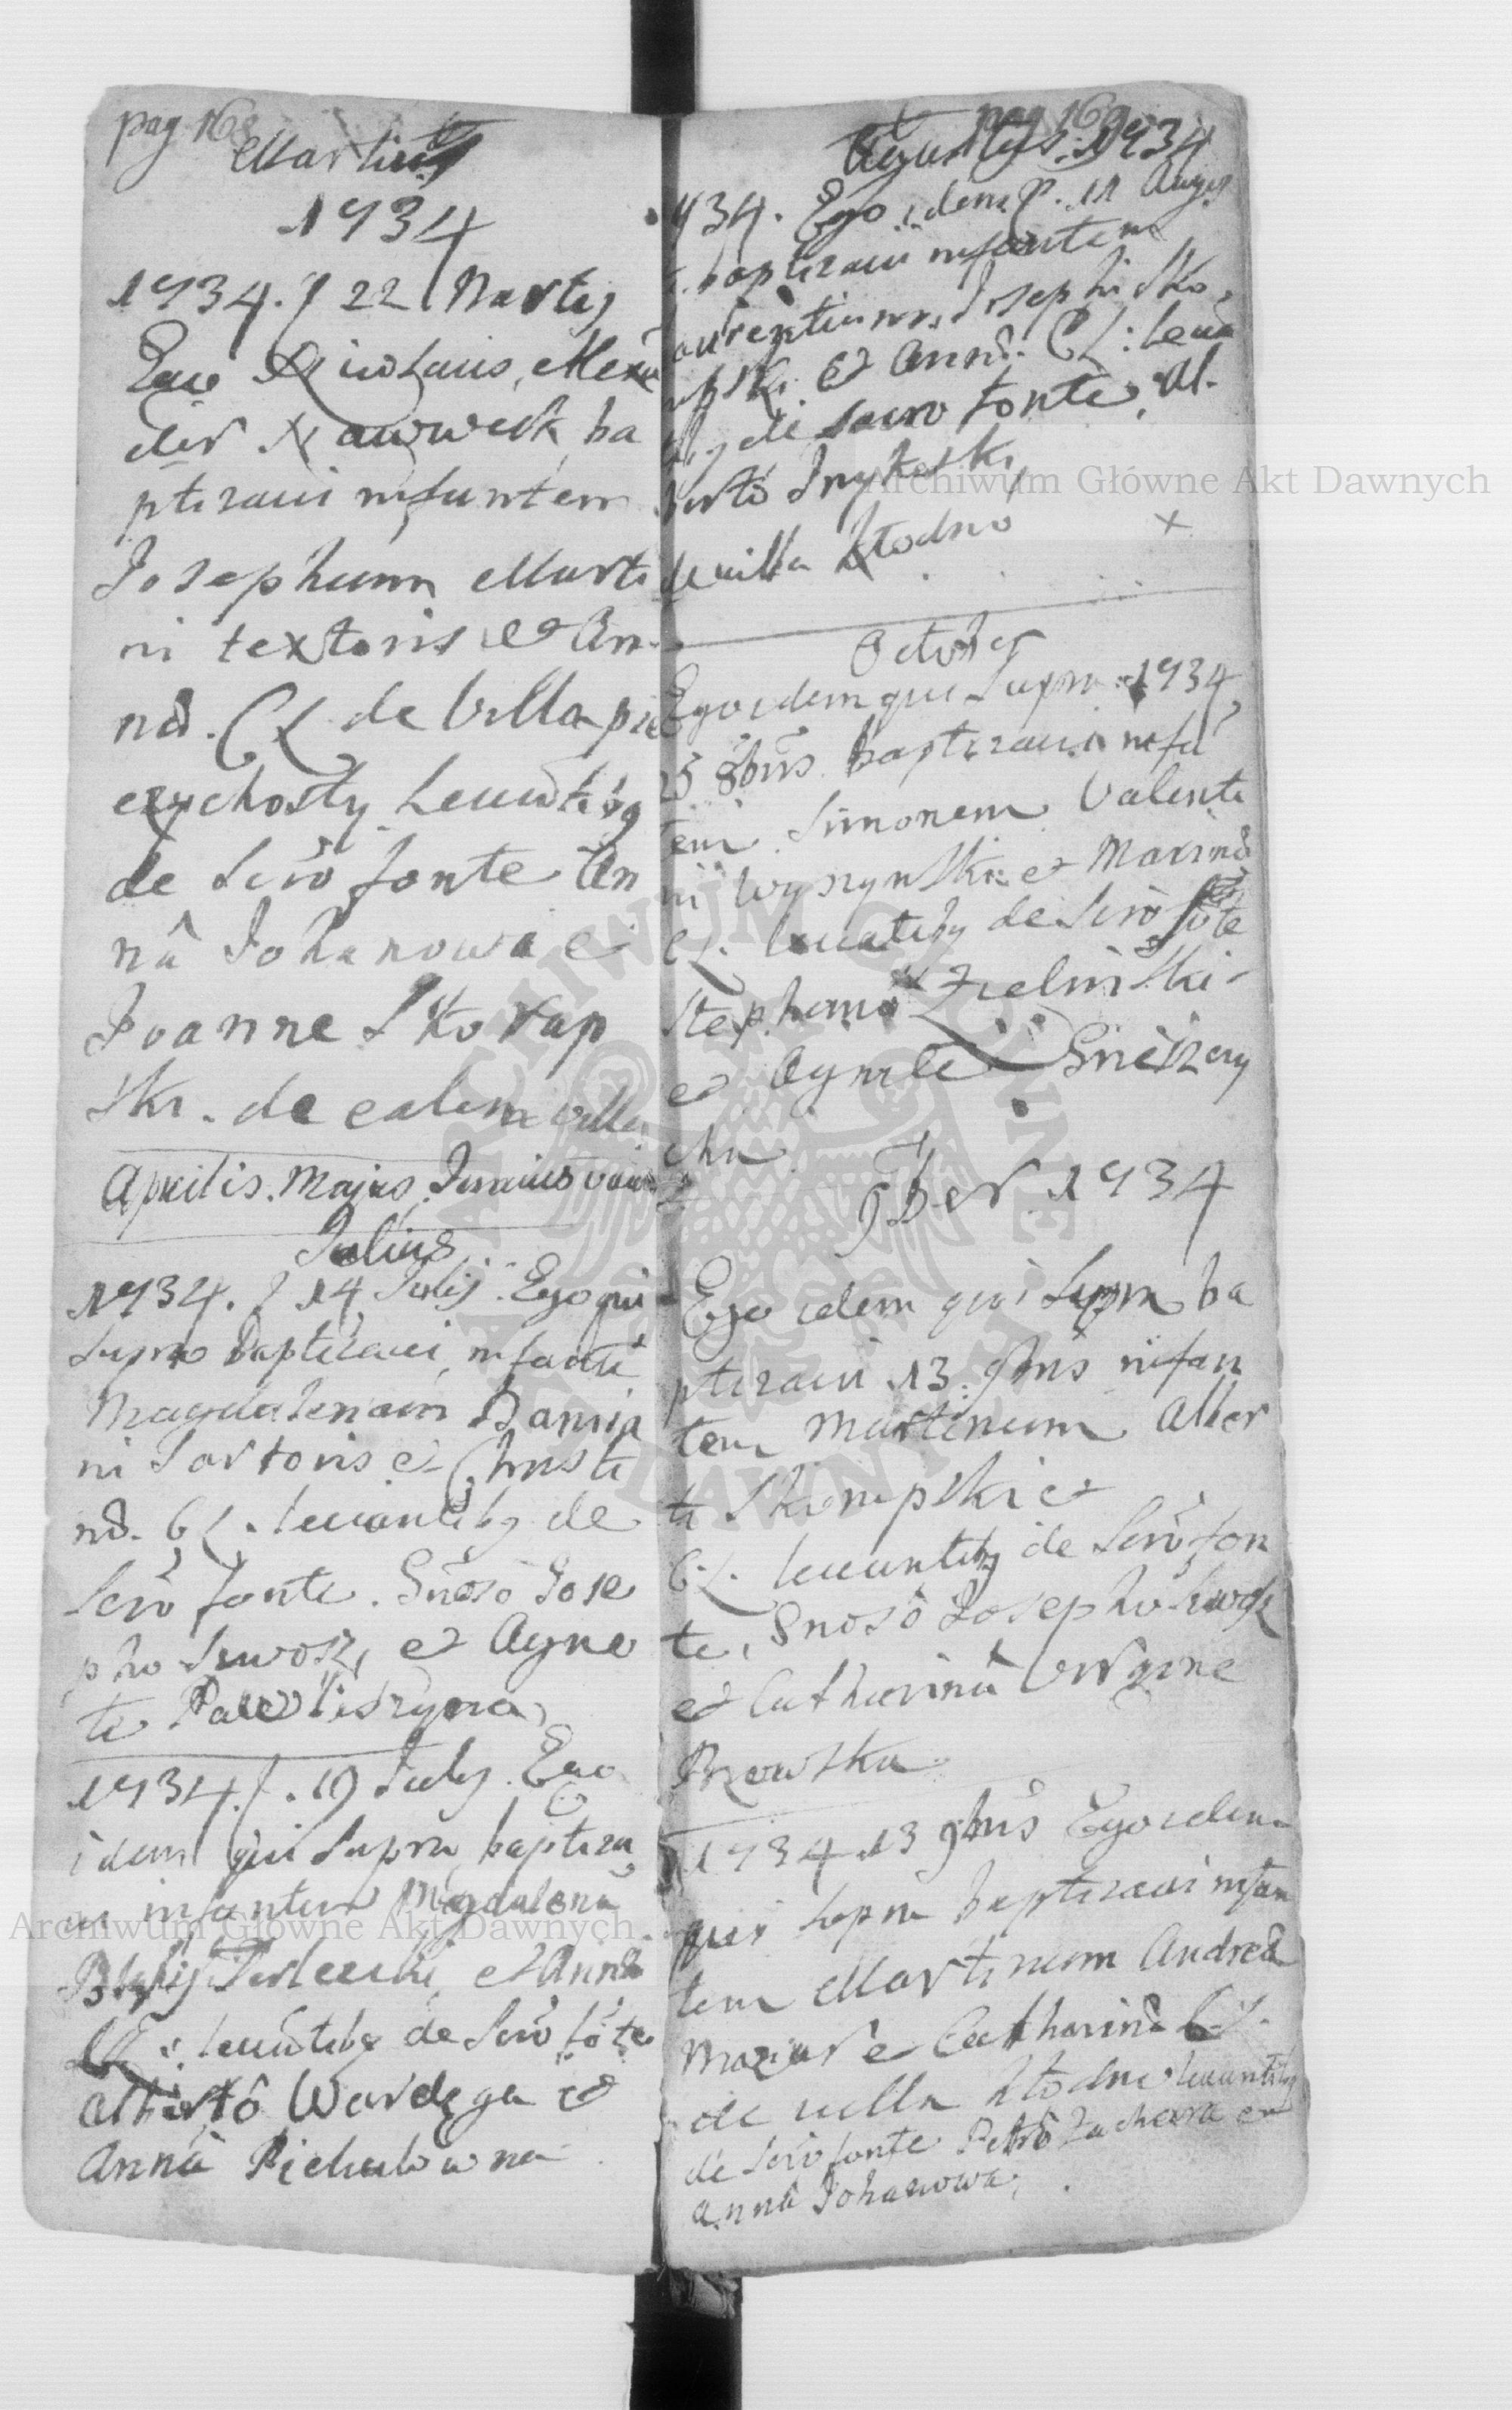 pag 168
Martius
1734
1734. d 22 Martij
Ego Nicolaus Alexan
der Nawweck ba
ptizavi infantem
Josephum Marti
ni textoris et An
nae. CL de Villa pie
czychosty Levantibg
de Scro fonte An
nâ Johanowa et
Joanne Skorup
ski. de eadem villa
Aprilis. Majus, Junius
Julius
1734. d 14 Julij. Ego qui
supra baptizavi infante
Magdalenam Damia
ni Sartoris et Christi
nae. CL. levantibg de
Scro fonte. Gnoso Jose
pho et Agne
te
1734. d. 19 July. Ego
idem qui Supra baptiza
vi infantem Magdalena
Blasij et Annae
CL: levatibg de Scro fote
Albertô Wardęga et
Annâ Pichulowna
pag 169
Augustus. 1734
1734. Ego idem P. 11 Augus
ti baptizavi infantem
Laurentium, Josephi Sko
rupski et Annae. CL: leva
tibg de sacro fonte, Al
bertô
de villa Kłodno
October
Ego idem qui Supra 1734
25 8bris baptizavi infa
tem Simonem Valenti
ni Wyszynski et Marinae
CL. levatibg de Scro fote
Stephano Zielinski
et Agnete
cha
9ber 1734
Ego idem qui Supra ba
ptizavi 13. 9bris infan
tem Martinum Alber
ti Skempski et
CL. levantibg de Scro fon
te, Gnosô Josepho
et Catharinâ Virgine
Brzowska
1734 13 9bris Ego idem
qui supra baptizavi infan
tem Martinum Andreae
Mazur et Catharinae CL.
de villa Kłodno levantibg
de Scro fonte Petrô Zachara et
Annâ Johanowa,
Archiwum Główne Akt Dawnych
Archiwum Główne Akt Dawnych
ARCHIWUM GŁÓWNE AKT DAWNYCH